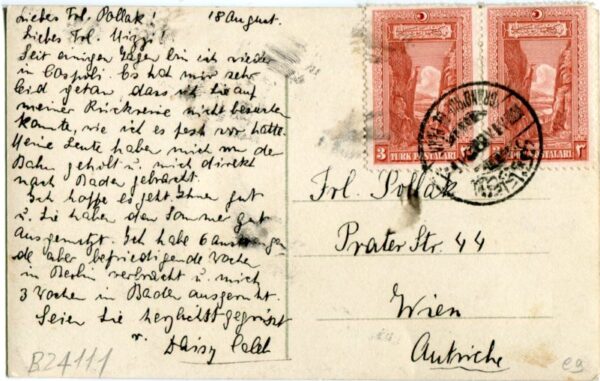 Liebes Frl. Pollak! 18 August.
Liebes Frl. 
Seit einigen Tagen bin ich wieder
in Es hat mir sehr
leid getan, dass ich Sie auf
meiner Rückreise nicht besuchen
konnte, wie ich es fest vor hatte.
Meine Leute haben mich von der
Bahn geholt u. mich direkt
nach Baden gebracht.
Ich hoffe es geht Ihnen gut
u. Sie haben den Sommer gut
ausgenützt. Ich habe 6 anstrengen
de aber befriedigende Wochen
in Berlin verbracht u. mich
3 Wochen in Baden ausgeruht.
Seien Sie herzlichst gegrüsst
v. Daisy
3 TÜRK POSTALARI ٣
3 TÜRK POSTALARI ٣
Frl. Pollak
Prater Str. 44
Wien
Autriche
B24111